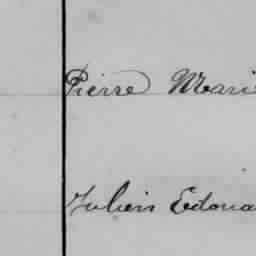 Pierre Mari
Julien Edoua